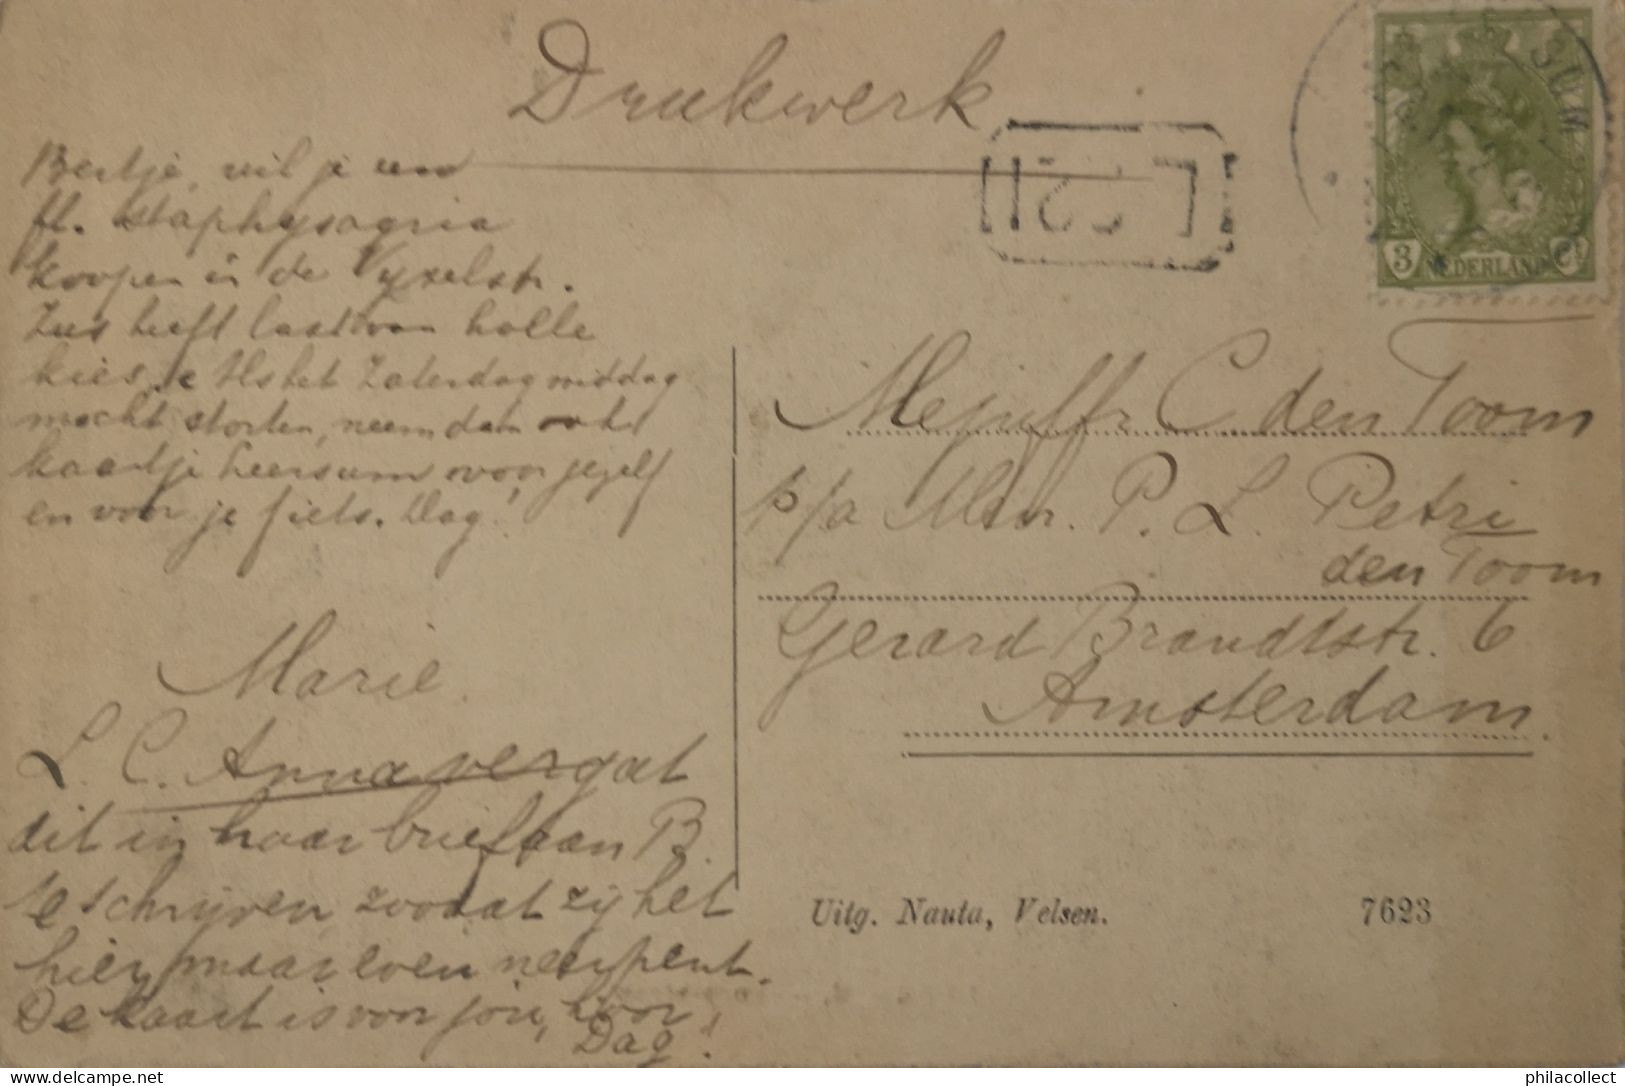 Drukwerk
Bertje, wil je een
fl. Staphysagria
koopen in de Vijzelstr.
Zus heeft last van holle
kies. Als het Zaterdagmiddag
mocht storten, neem dan
kaartje Leersum voor jezelf
en voor je fiets. Dag!
Marie
L. C. Anna vergat
dit in haar brief aan B.
te schrijven, zoodat zij het
hier maar even neerpent.
De kaart is voor jou, hoor!
Dag!
SUM
3 NEDERLAND
Mejuffr C den Toom
p/a Mevr. P. L. Petri
den Toom
Gerard Brandtstr. 6
Amsterdam.
Uitg. Nauta, Velsen. 7623
philacollect